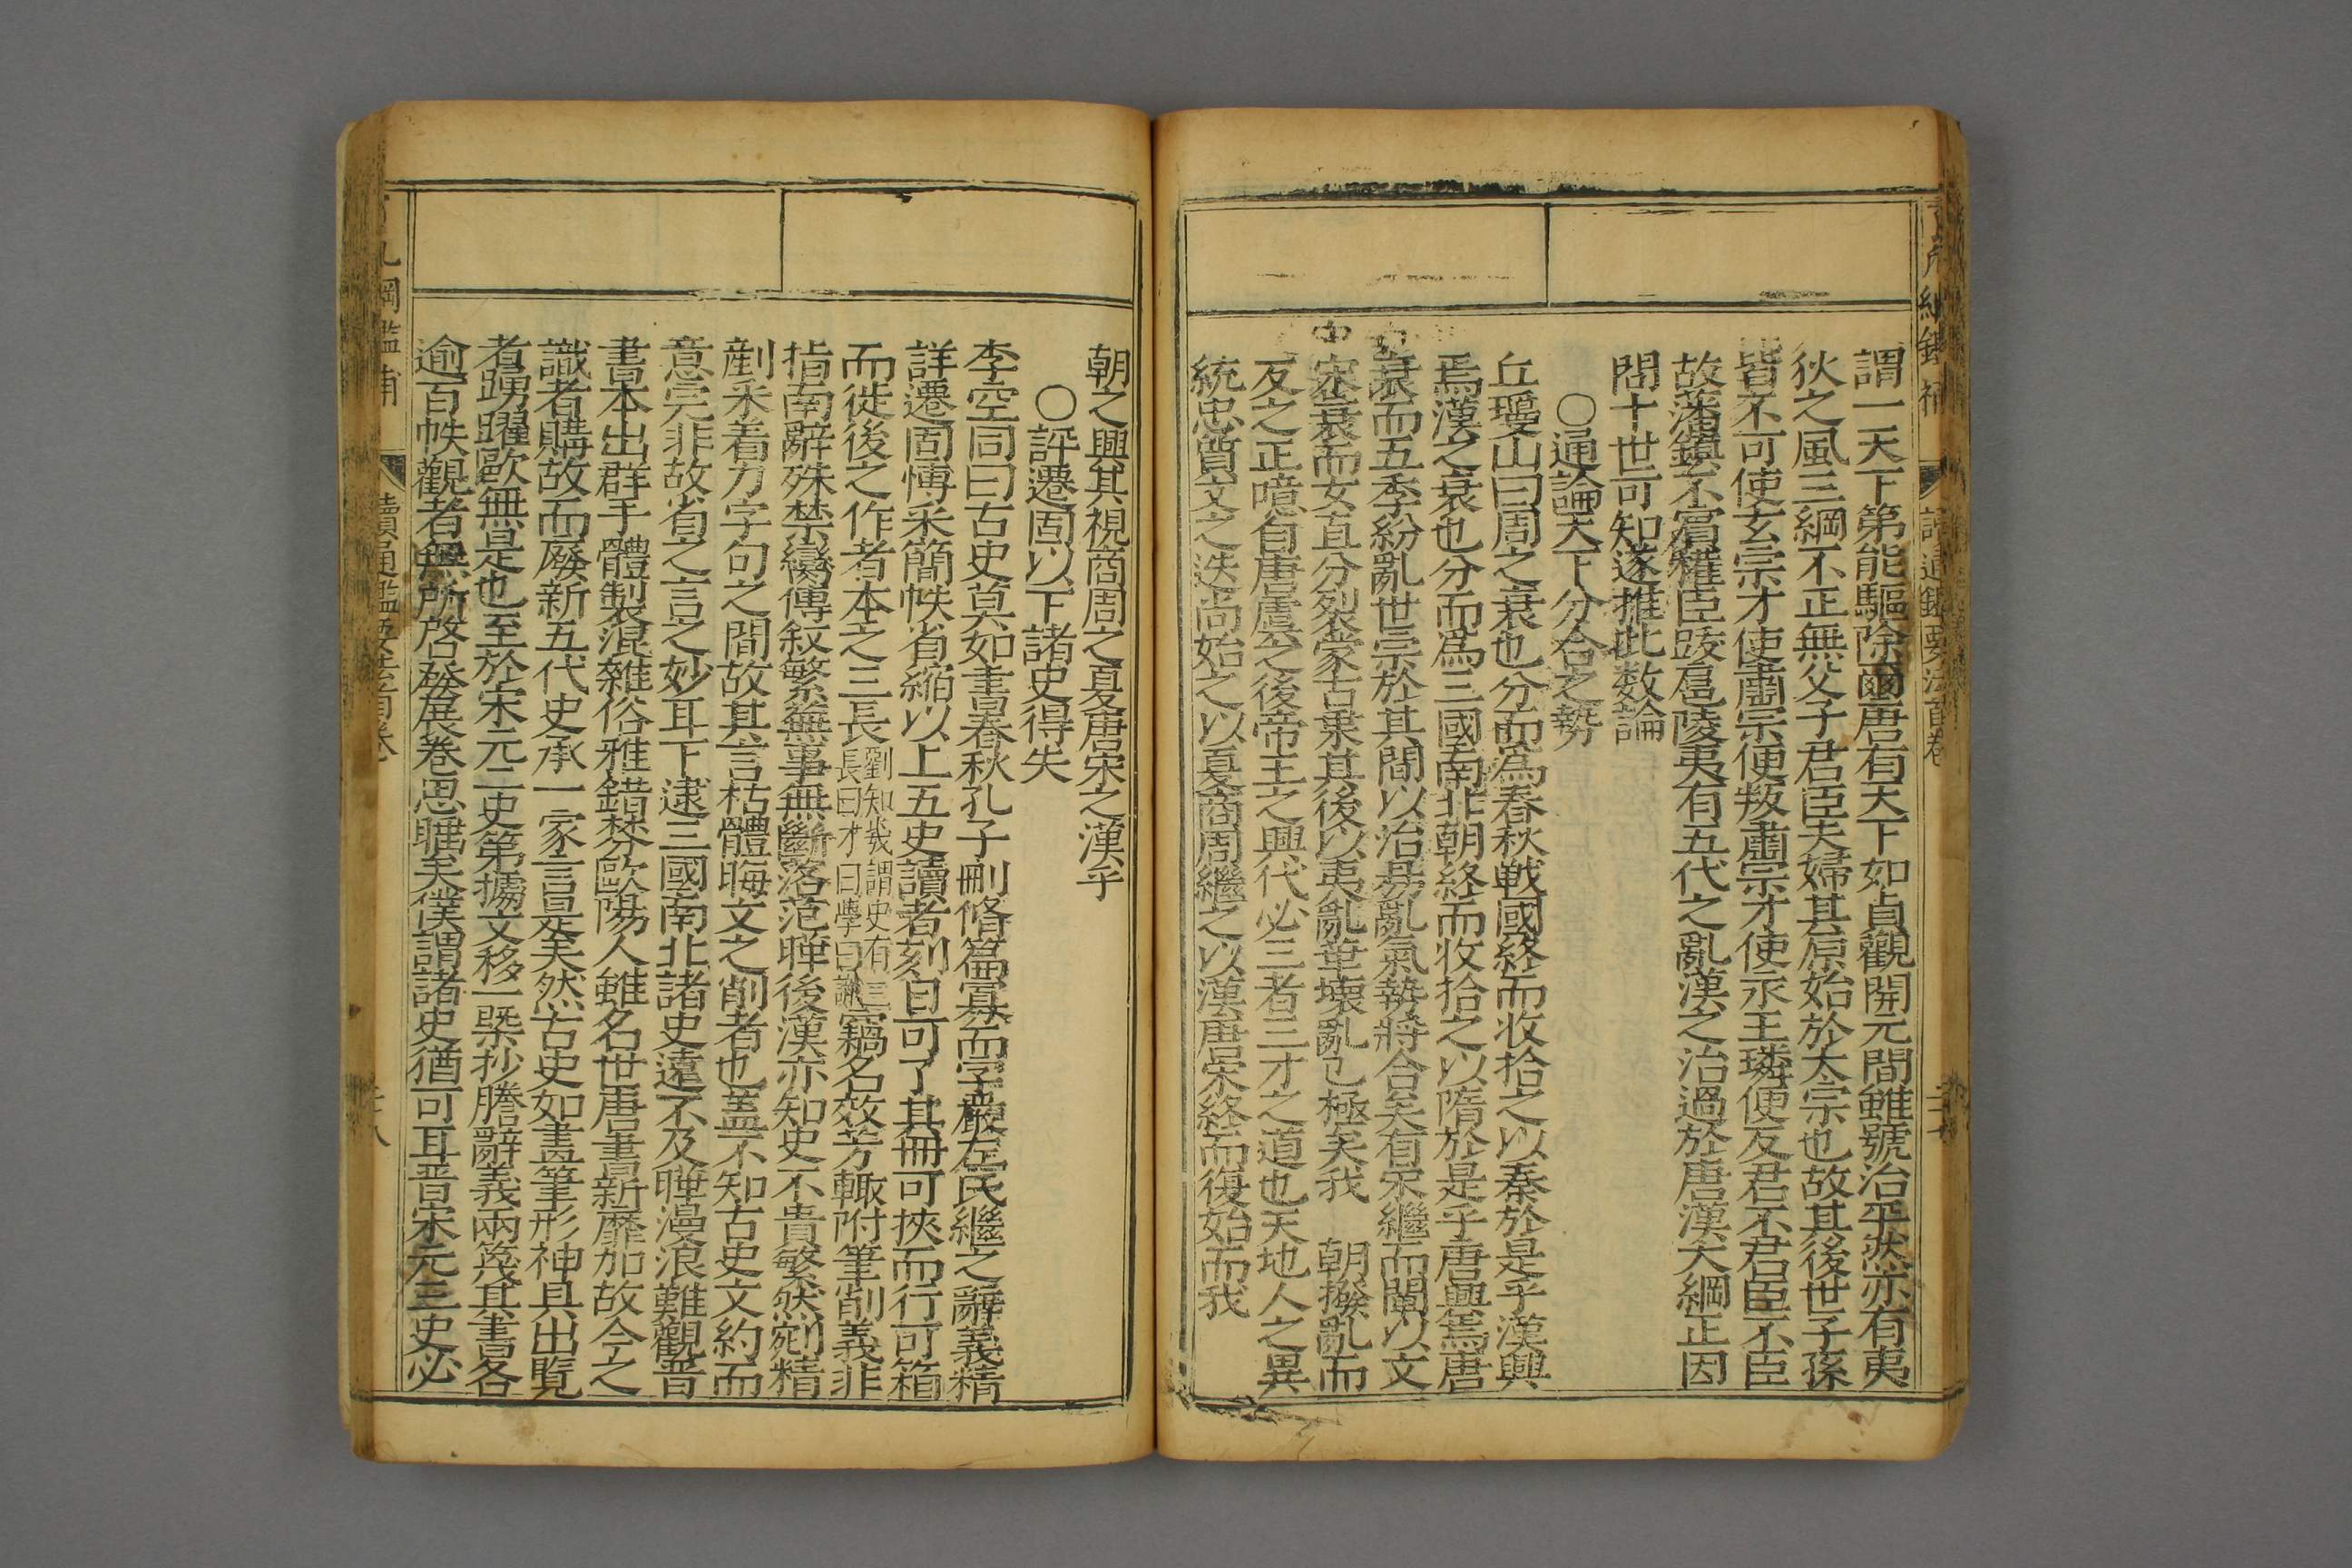 謂一天下第能驅除爾唐有天下如貞觀開元間雖號治平然亦有夷
狄之風三綱不正無父子君臣夫婦其原始於太宗也故其後世子孫
皆不可使玄宗才使肅宗便叛肅宗才使永王璘便反君不君臣不臣
故藩鎮不賓權臣跋扈陵夷有五代之亂漢之治過於唐漢大綱正因
問十世可知遂推此数論
○通論天下分合之勢
丘瓊山曰周之衰也分而爲春秋戦國終而收拾之以秦於是乎漢興
焉漢之衰也分而爲三國南北朝終而收拾之以隋於是乎唐興焉唐
衰而五季紛亂世宗於其間以治昜亂氣勢將合矣有宋繼而闡以文
宋衰而女直分裂蒙古乗其後以夷亂華壊亂已極矣我 朝撥亂而
反之正噫自唐虞之後帝王之興代必三者三才之道也天地人之異
統忠質文之迭尚始之以夏商周繼之以漢唐宋終而復始而我
朝之興其視商周之夏唐宋之漢乎
○評遷固以下諸史得失
李空同曰古史莫如書春秋孔子刪脩篇寡而字嚴左氏繼之辭義精
詳遷固愽采簡帙省縮以上五史讀者刻自可了其冊可挾而行可箱
而徙後之作者本之三長劉知幾謂史有三長曰才曰學曰識竊名效芳輙附筆削義非
指南辭殊禁臠傳叙繁蕪事無斷落范曄後漢亦知史不貴繁然剜精
剷采着力字句之間故其言枯體晦文之削者也盖不知古史文約而
意完非故省之言之妙耳下逮三國南北諸史遠不及曄漫浪難觀晋
書本出群手體製混雜俗雅錯棼歐陽人雖名世唐書新靡加故今之
識者購故而廢新五代史承一家言是矣然古史如畫筆形神具出覽
者踴躍歐無是也至於宋元二史第據文移一槩抄謄辭義兩篾其書各
逾百帙觀者無所啓發展卷思睡矣僕謂諸史猶可耳晋宋元三史必